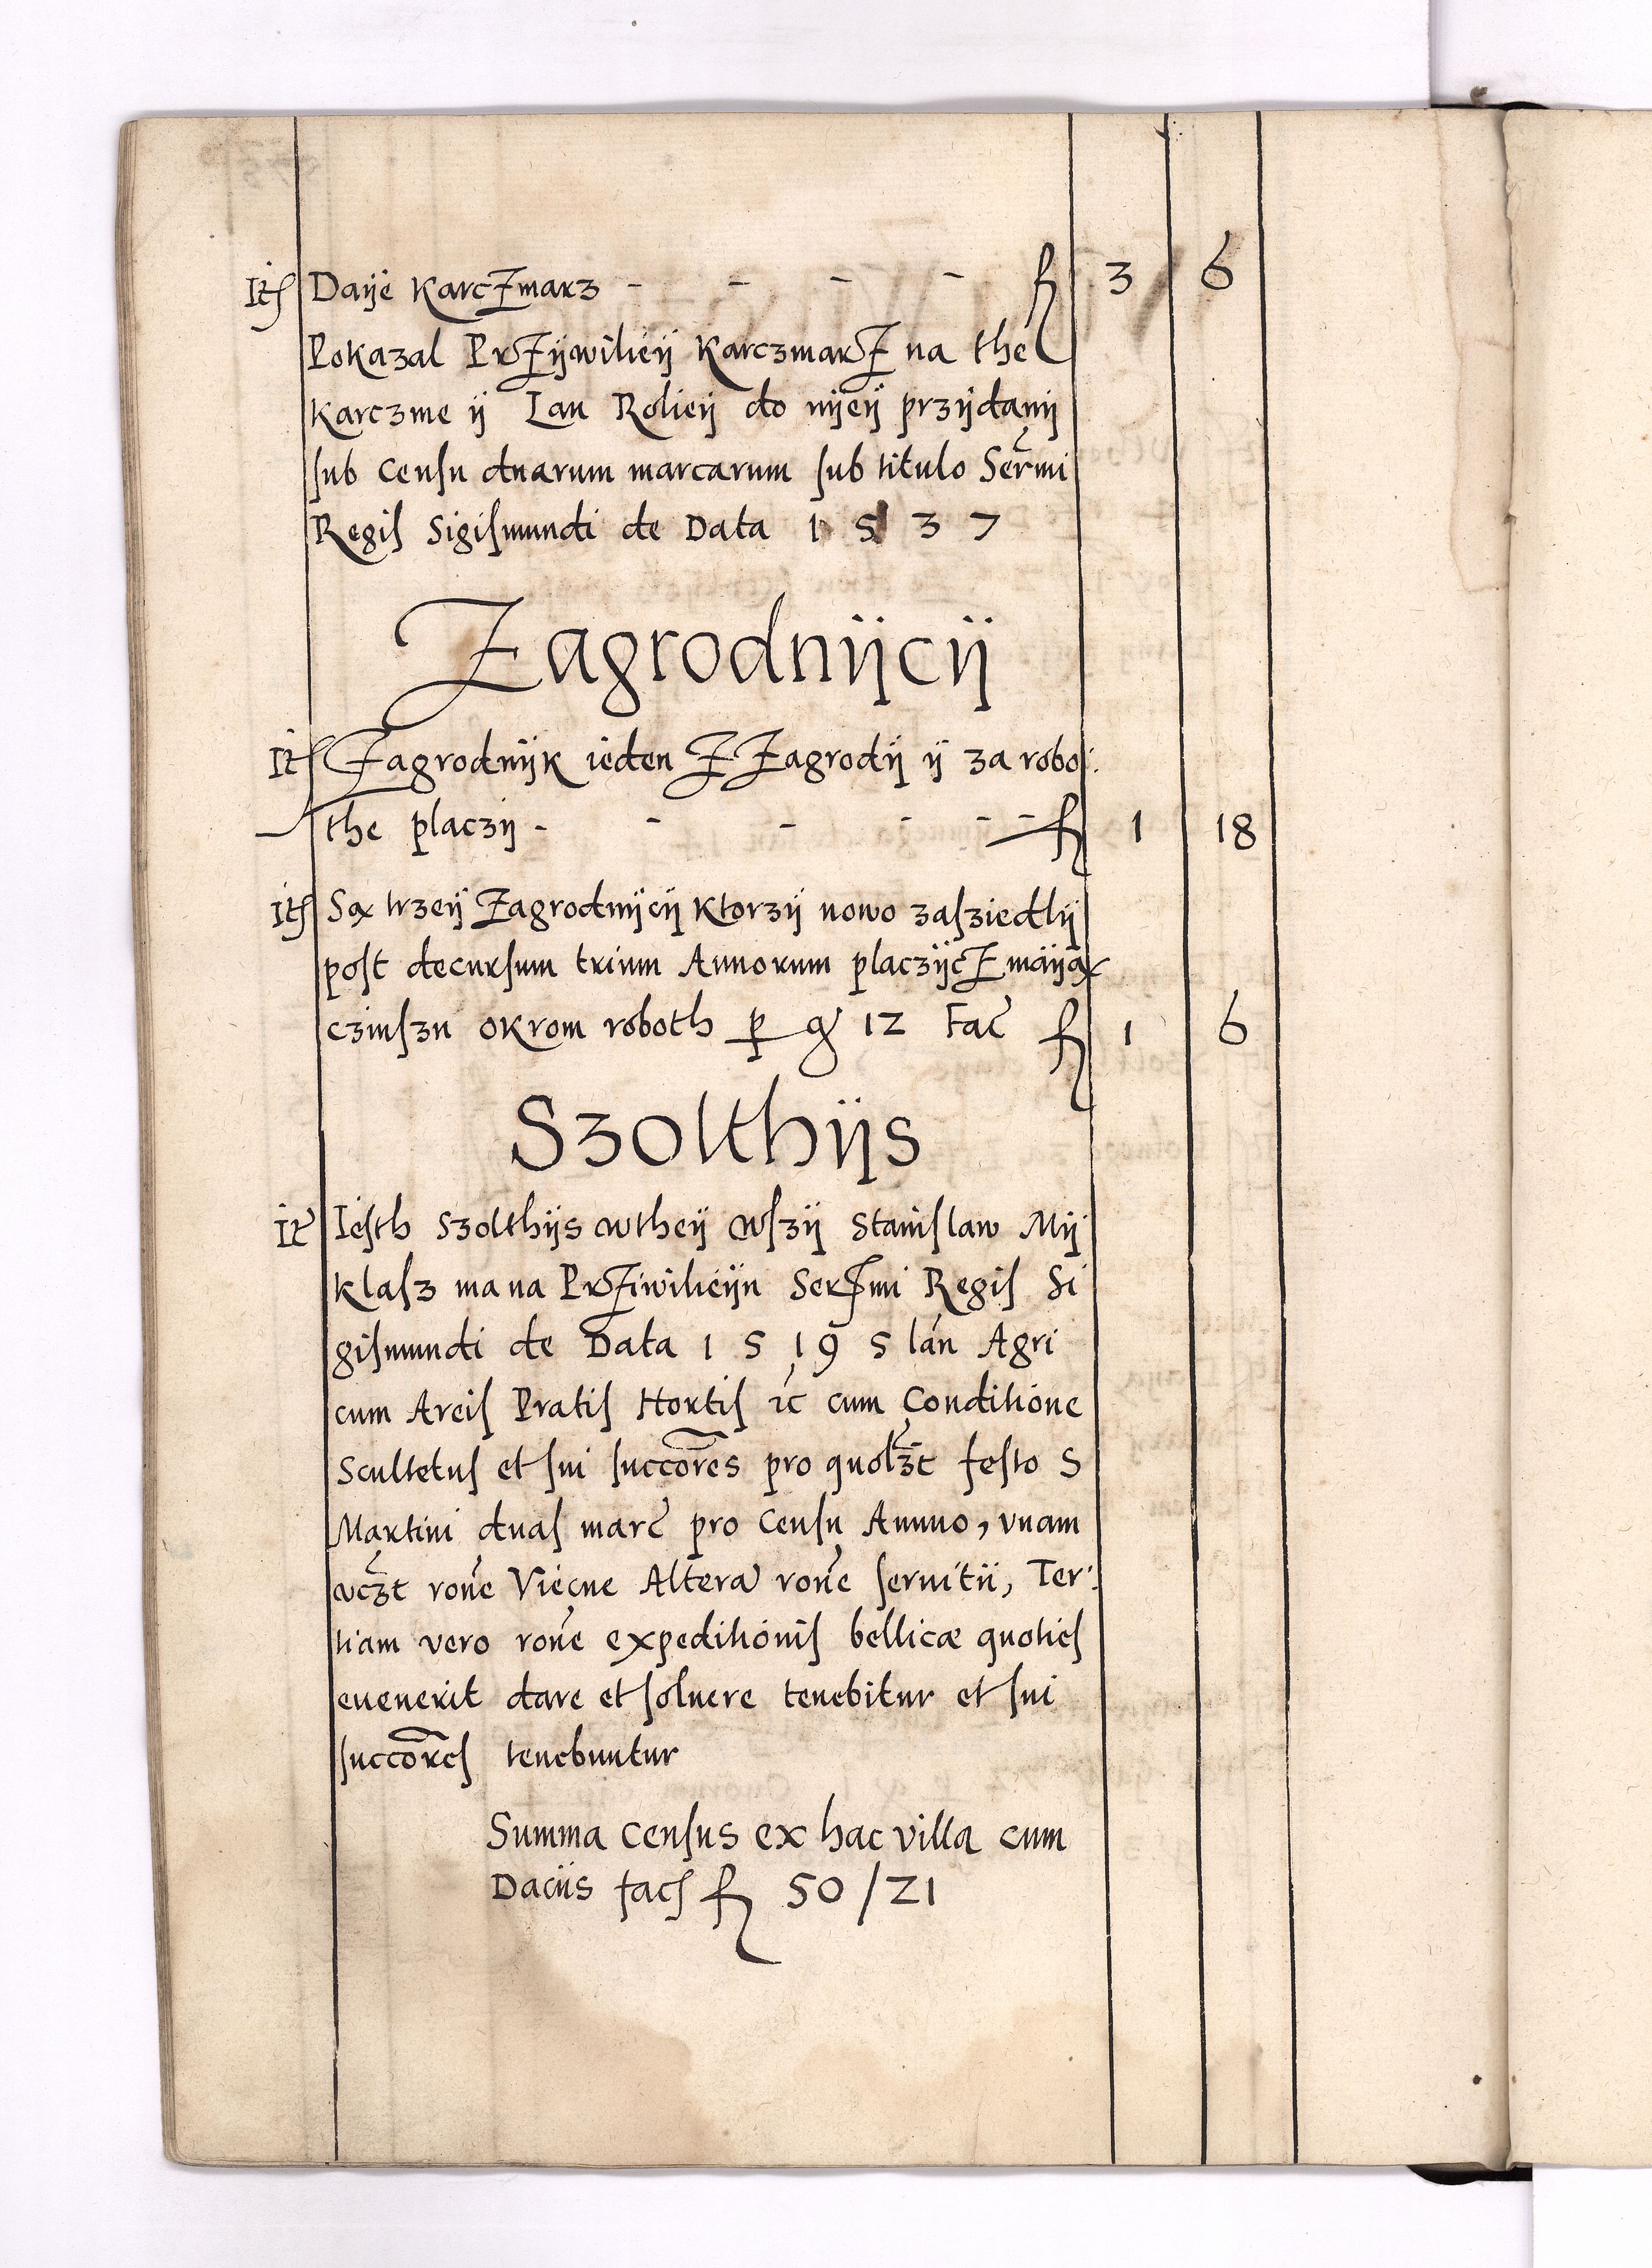 Itʃ Daÿe KarcZmarz - - - - fl 3 6
Pokazal PrZÿwilieÿ KarczmarZ na the
Karczme ÿ Lan Rolieÿ do nÿeÿ przÿdanÿ
ſub Cenſu duarum marcarum ſub titulo Sermi
Regiſ Sigiſmundi de Data 1 5 3 7
Zagrodnÿcÿ
Itʃ Zagrodnÿk ieden Z Zagrodÿ ÿ za robo
the placzÿ - - - - - - fl 1 18
itʃ Są trzeÿ Zagrodnÿcÿ Ktorzÿ nowo zaſziedlÿ
poſt decurſum trium Annorum placzÿcZ maÿą
czinſzu okrom roboth p g 12 Fac fl 1 6
Szolthÿs
It Ieſth Szolthÿs wtheÿ wſzÿ Staniſlaw Mÿ
klaſz ma na PrZiwilieÿu SerZmi Regiſ Si
giſmundi de Data 1 5 19 5 lan Agri
cum Areiſ Pratiſ Hortiſ ꝛc cum Conditione
Scultetuſ et ſui ſuccores pro quolzt feſto S
Martini duaſ marc pro Cenſu Annuo, vnam
vczt rone Viecne Altera rone ſeruitii, Ter
tiam vero rone expeditioniſ bellicæ quotieſ
euenerit dare et ſoluere tenebitur et ſui
ſuccoreſ tenebuntur
Summa Cenſus ex hac villa cum
Daciis facʃ fl 50 / 21